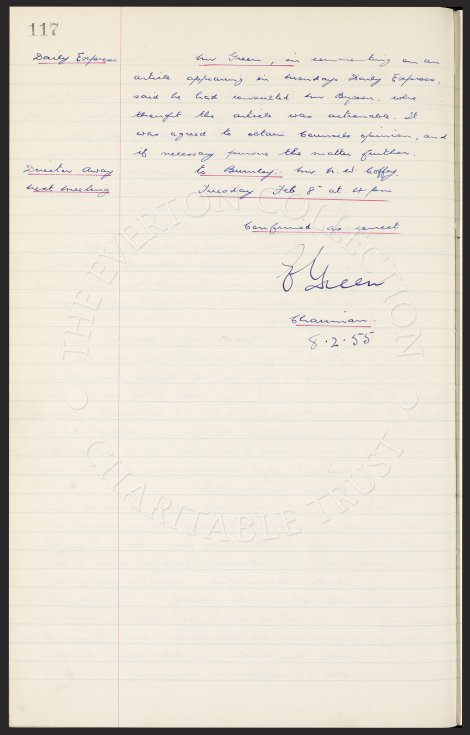 117
Daily Express
Mr Green, in commenting on an
article appearing in Mondays Daily Express,
said he had consulted Mr Bryson, who
thought the article was actionable. It
was agreed to obtain Counsels opinion, and
if necessary pursue the matter further.
Director Away
to Burnley. Mr N. W. Coffey.
Next meeting
Tuesday Feb 8 at 4 pm
Confirmed as correct
Green
Chairman.
8.2.55
THE EVERTON COLLECTION
CHARITABLE TRUST